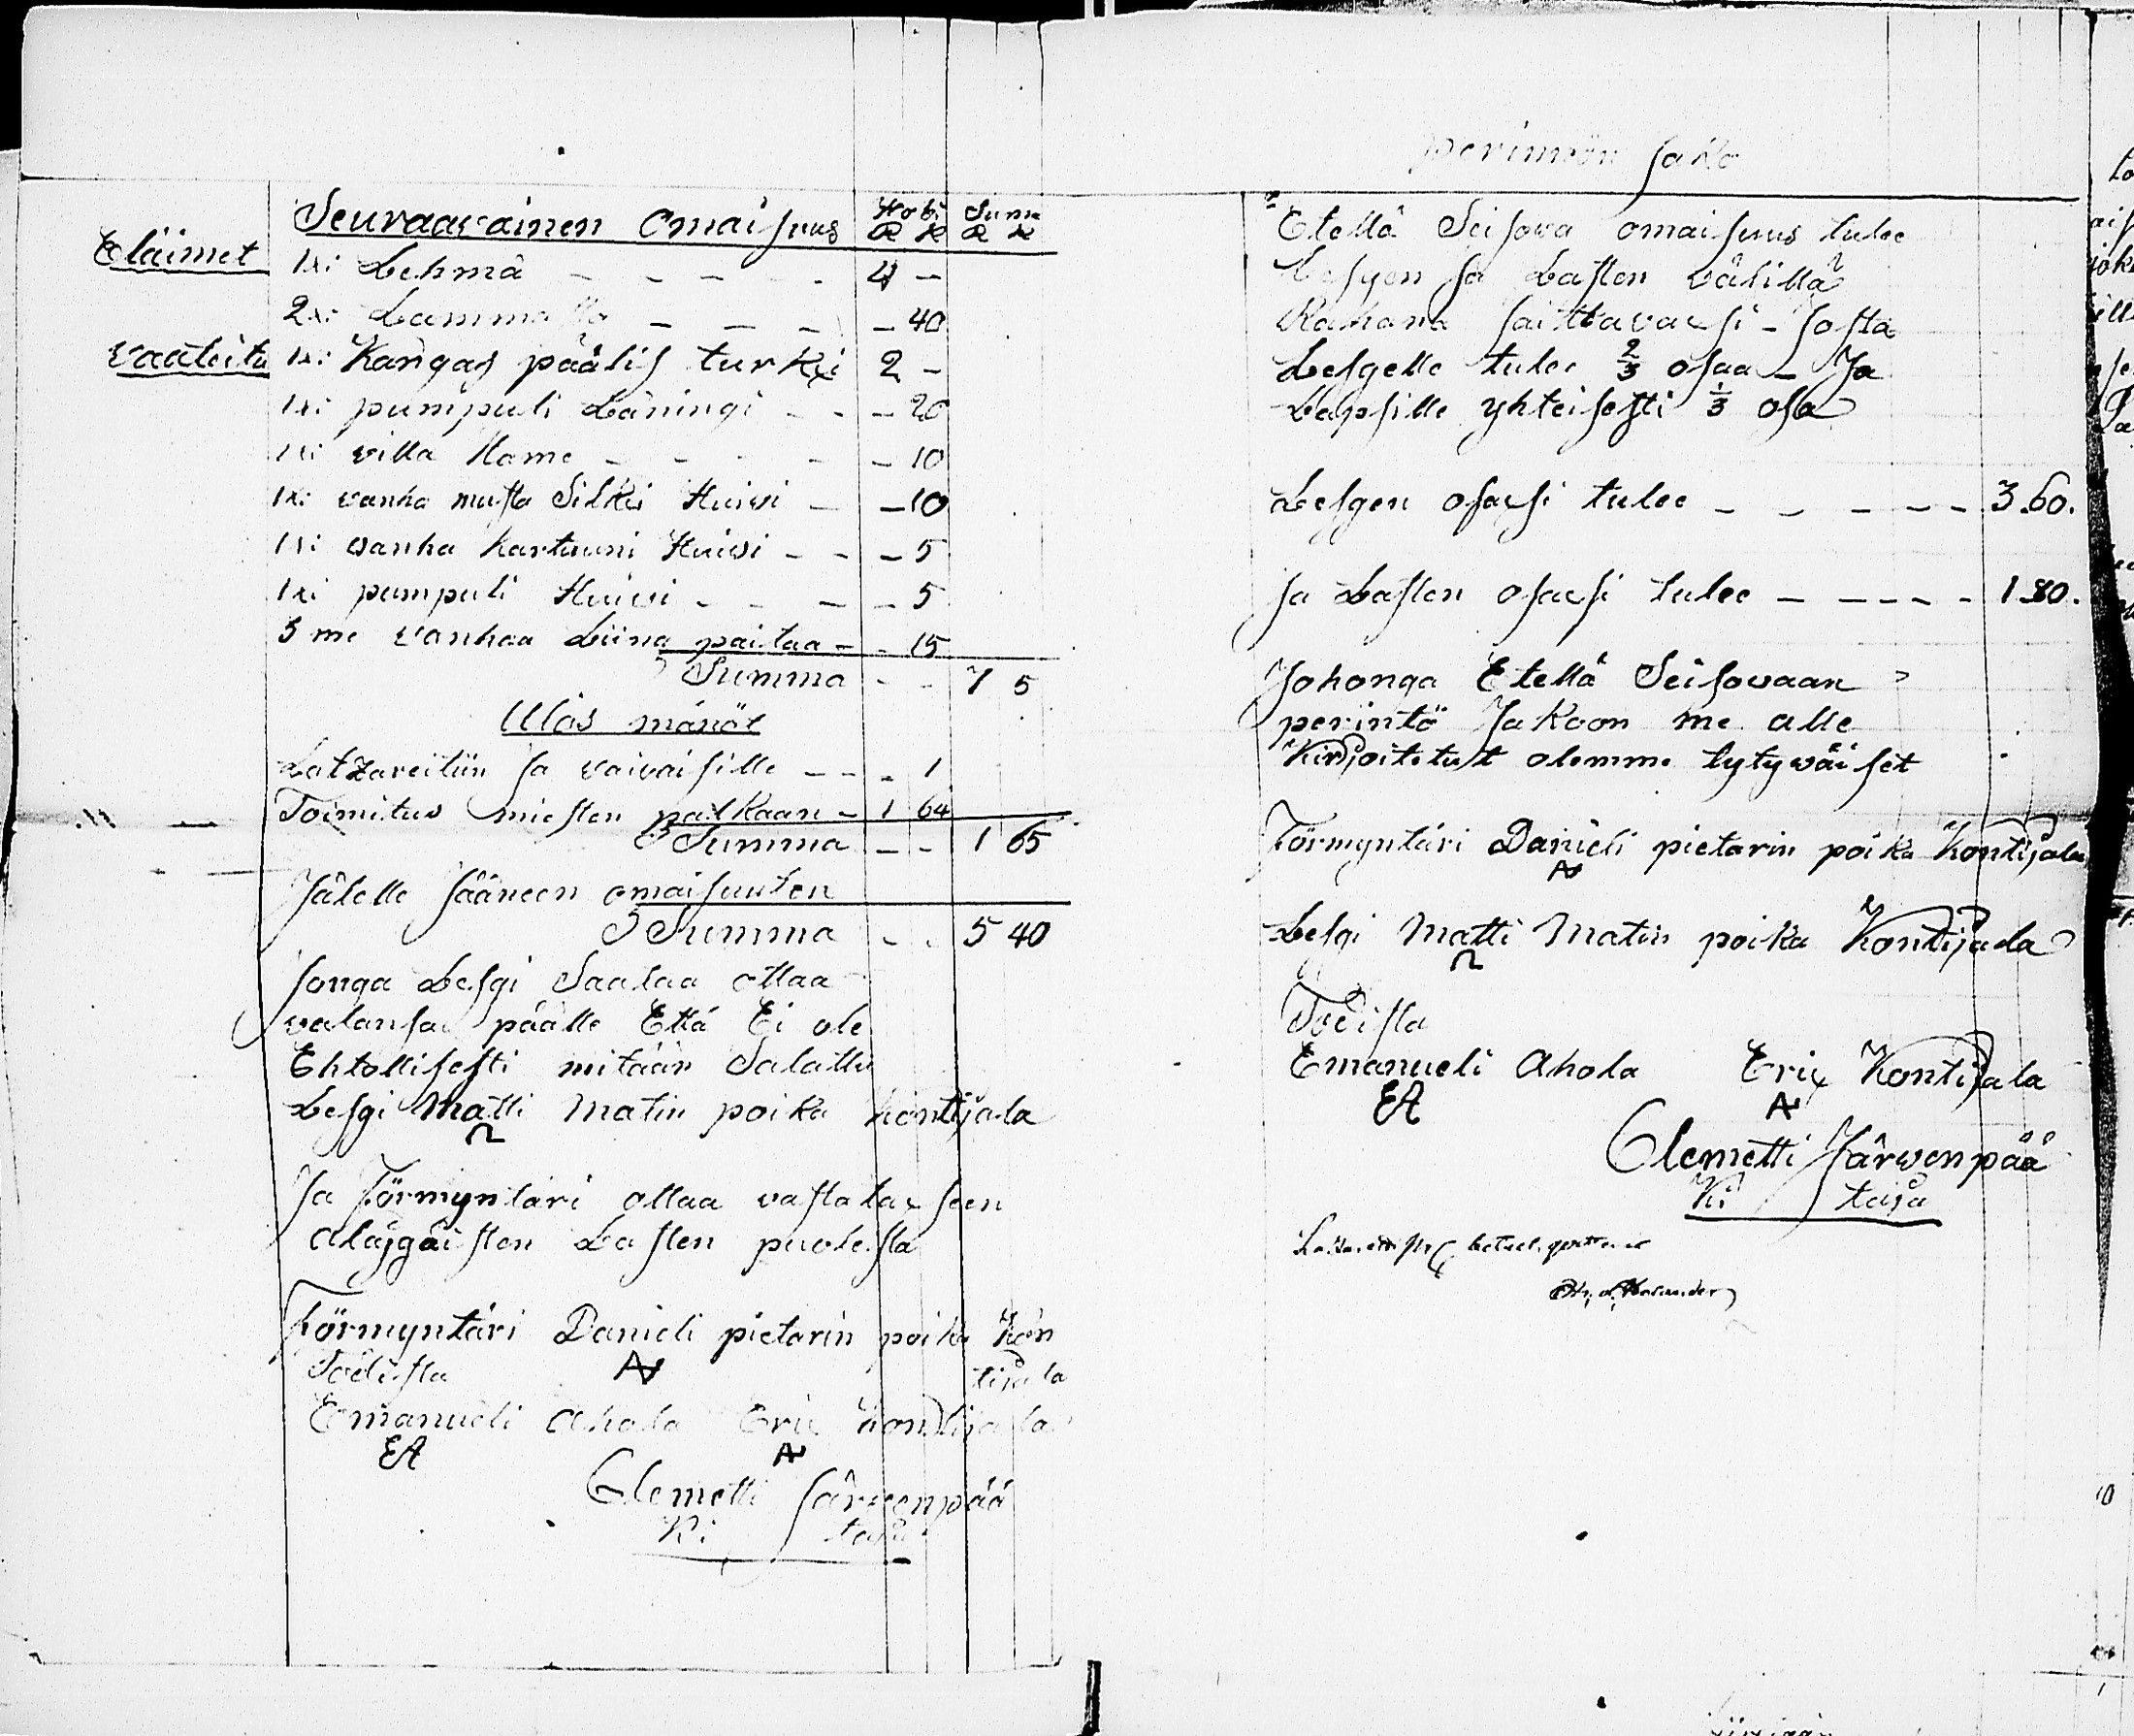 Seuraavainen omaisuus Hobi Summa
R K R K
Eläimet 1xi Lehmä - - - - - 4 -
2xi Lammasta - - - - 40
vaateita 1xi Kangas päälis turkki 2 -
1xi pumpuli Läningi - - - 20
1xi villa Hame - - - - - 10
1xi vanha musta Silkki Huivi - - 10
1xi vanha kartuuni Huivi - - - 5
1xi pumpuli Huivi - - - - 5
3 me vanhaa Liina paitaa - - 15
Summa - - 7 5
Ulos mänöt
Latzareitiin ja vaivaisille - - - 1
Toimitus miesten palkkaan - 1 64
Summa - - 1 65
Jälelle jääneen omaisuuten
Summa - - 5 40
jonga Lesgi Saataa ottaa
valansa päälle Että Ei ole
Ehtollisesti mitään Salattu
Lesgi Matti Matin poika Kontijala
Ja Förmyntäri ottaa vastataxseen
alajgäisten Lasten puolesta
Förmyntäri Danieli pietarin poika Kon
Todista tijala
Emanueli Ahola Eric Kontijala
EA
Clemetti Järwenpää
Ki taja
perimön jako
Etellä Seisova omaisuus tulee
Lesgen ja Lasten välillä
Rahana jaittavaxsi - josta
Lesgelle tulee 2/3 osaa - Ja
Lapsille yhteisesti 1/3 osa
Lesgen osaxsi tulee - - - - - 3.60.
ja Lasten osaxsi tulee - - - - - 1.80.
Johonga Etellä Seisovaan
perintö Jakoon me alle
Kirjoitetut olemme tytywäiset
Förmyntäri Danieli pietarin poika Kontijala
Lesgi Matti Matin poika Kontijala
Todista
Emanueli Ahola Eric Kontijala
EA
Clemetti Järwenpää
Ki taja